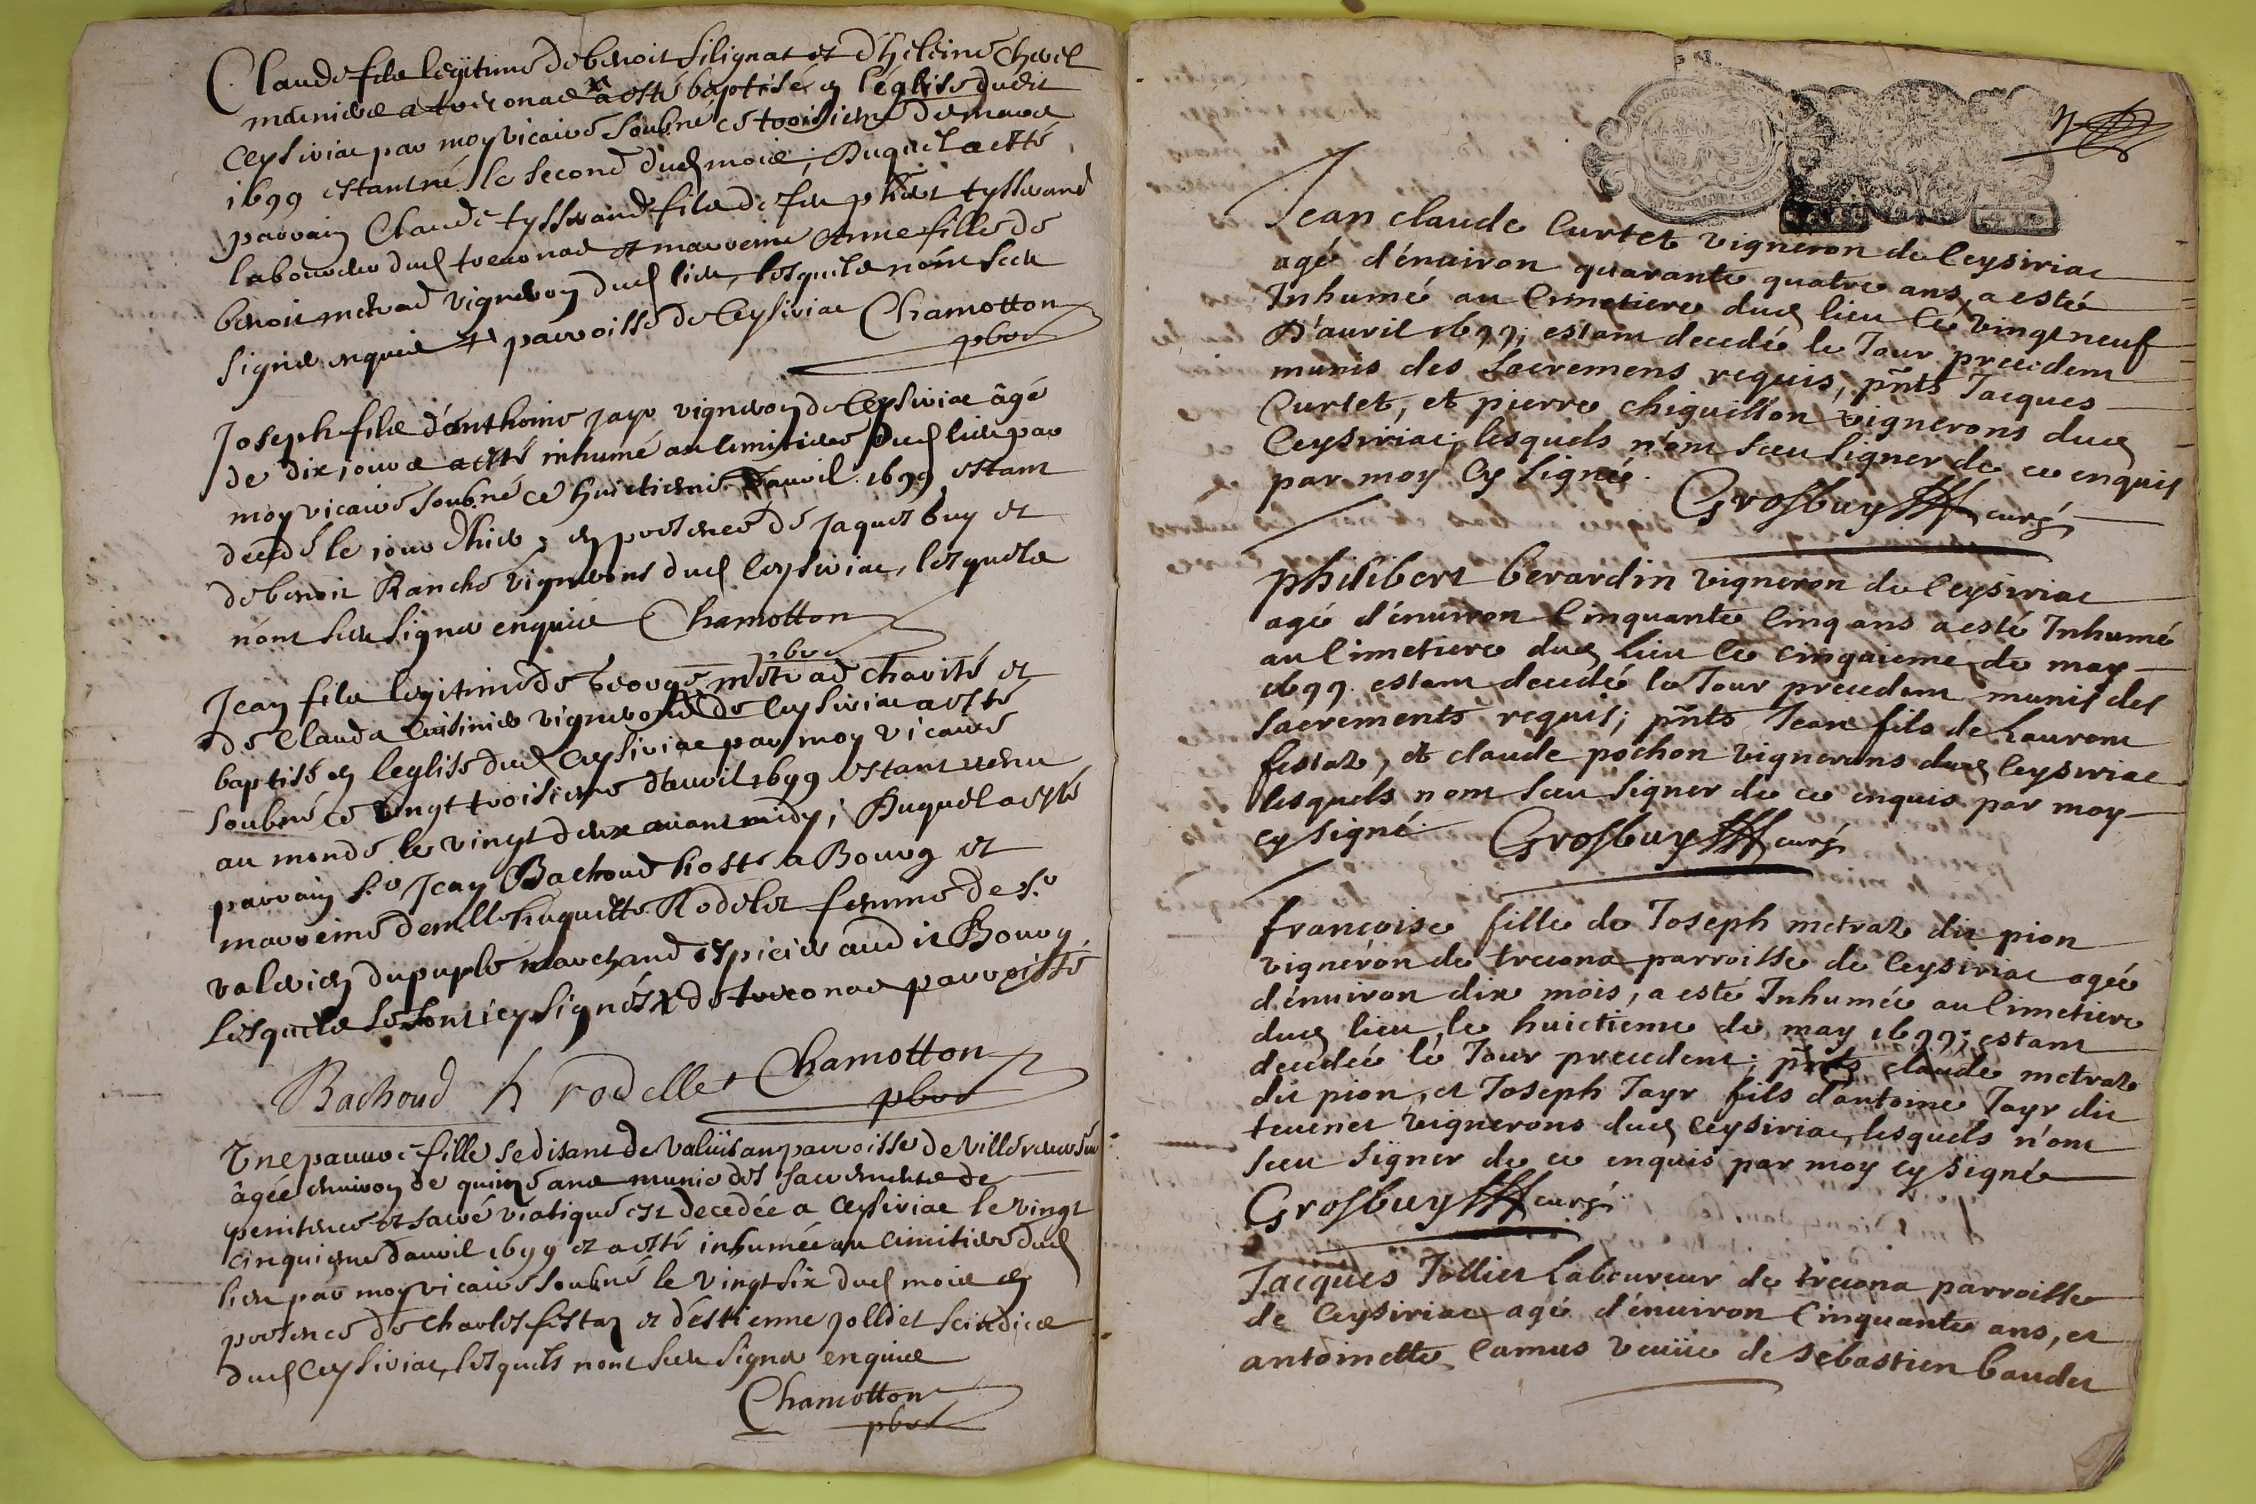 Claude fils legitime de benoit Silignat et d'heleine Chevel
meuniers a treconas a esté baptisé en l'église dudit
Ceysiriac par moy vicaire soubné ce troisieme de mars
1699 estant né le second dud mois; Duquel a esté
parrain Claude tysserand fils de feu phibert tysserand
laboureur dud treconas et marreine Anne fille de
benoit metrad vigneron dud lieu, lesquels n'ont sceu
signer enquis et parroisse de Ceysiriac Chamotton
pbre
Joseph fils d'anthoine jayr vigneron de Ceysiriac âgé
de dix jours a esté inhumé au cimitiere dud lieu par
moy vicaire soubné ce huictieme d'auril 1699 estant
decedé le jour d'hier, en presence de Jaques buy et
de benoit Ranche vignerons dud Ceysiriac, lesquels
n'ont sceu signer enquis Chamotton
pbre
Jean fils legitime de george metrad charité et
de Clauda Cuisinier vignerons de Ceysiriac a esté
baptisé en leglise dud Ceysiriac par moy vicaire
soubné ce vingt troisieme d'auril 1699 estant venu
au monde le vingt deux auant midy; Duquel a esté
parrain Sr Jean Bachoud hoste a Bourg et
marreine demlle huguette Rodelet femme de Sr
valerien dupuple marchand espicier audit Bourg
lesquels se sont icy signés x de treconas parroisse
Bachoud h rodellet Chamotton
pbre
Une pauure fille se disant de valuisan parroisse de villereuersure
âgée enuiron de quinze ans munie des sacrements de
penitence et sacré viatique est decedée a Ceysiriac le vingt
cinquieme d'auril 1699 et a esté inhumée au cimitiere dud
lieu par moy vicaire soubné le vingt six dud mois en
presence de Charles festaz et d'estienne jolliet scindics
dud Ceysiriac, lesquels n'ont sceu signer enquis
Chamotton
pbre
Jean claude Curtet vigneron de Ceysiriac
agé d'énuiron quarante quatre ans, a esté
Inhumé au Cimetiere dud lieu Ce vingt neuf
D'auril 1699; estant decedé le Jour precedent
munis des sacremens requis, pñts Jacques
Curtet, et pierre chiguillon vignerons dud
Ceysiriac, lesquels n'ont sceu signer de ce enquis
par moy Cy signé. Grosbuy curé
philibert berardin vigneron de Ceysiriac
agé d'énuiron Cinquante Cinq ans a esté Inhumé
au Cimetiere dud lieu Ce cinquieme de may
1699. estant decedé le Jour precedent munis des
sacrements requis; pñts Jean fils de Laurent
festaz, et claude pochon vignerons dud Ceysiriac
lesquels n'ont sceu signer de ce enquis par moy
cy signé. Grosbuy curé
francoise fille de Joseph metraz dit pion
vignéron de trecona parroisse de Ceysiriac agée
d'énuiron dix mois, a esté Inhumée au Cimetiere
dud lieu, le huictieme de may 1699; estant
decedée le Jour precedent; pñts claude metraz
dit pion, et Joseph Jayr fils d'antoine Jayr dit
teuenet vignerons dud Ceysiriac, lesquels n'ont
sceu signer de ce enquis par moy cy signé
Grosbuy curé
Jacques Jolliet Laboureur de trecona parroisse
de Ceysiriac agé d'énuiron Cinquante ans, et
antoinette Camus veuüe de sebastien baudet